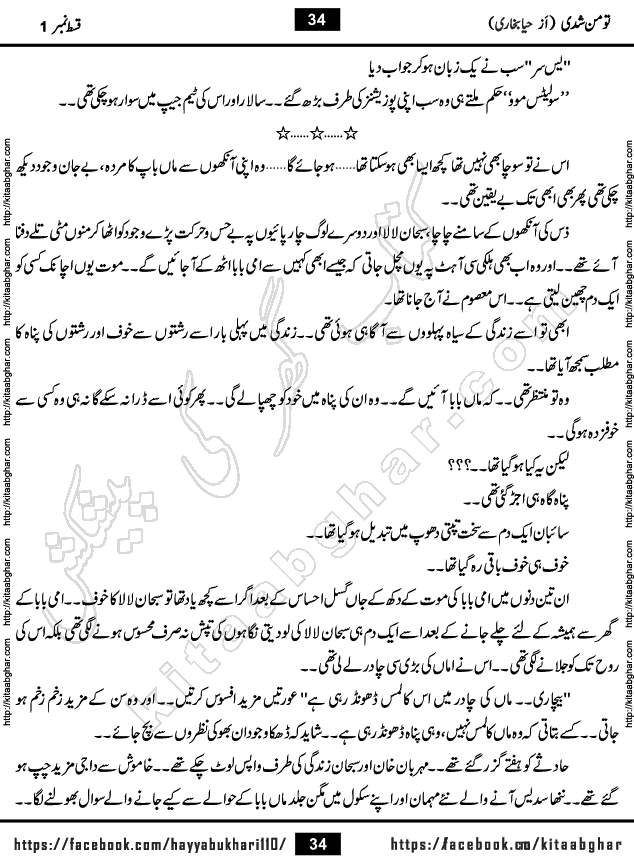 تو من شدی (از حیا بخاری)
34
قسط نمبر 1
"یس سر" سب نے یک زبان ہو کر جواب دیا
"سولیٹس موو" حکم ملتے ہی وہ سب اپنی پوزیشنز کی طرف بڑھ گئے۔۔ سالار اور اس کی ٹیم جیپ میں سوار ہو چکی تھی۔۔
☆......☆......☆
اس نے تو سوچا بھی نہیں تھا کچھ ایسا بھی ہو سکتا تھا......ہو جائے گا......وہ اپنی آنکھوں سے ماں باپ کا مردہ، بے جان وجود دیکھ
چکی تھی پھر بھی ابھی تک بے یقین تھی۔۔
ذس کی آنکھوں کے سامنے چاچا، سبحان لالا اور دوسرے لوگ چارپائیوں پہ بے حس و حرکت پڑے وجود کو اٹھا کر منوں مٹی تلے دفنا
آئے تھے۔۔ اور وہ اب بھی ہلکی سی آہٹ پہ یوں مچل جاتی کہ جیسے ابھی کہیں سے امی بابا اٹھ کے آ جائیں گے۔۔ موت یوں اچانک کسی کو
ایک دم چھین لیتی ہے۔۔ اس معصوم نے آج جانا تھا۔
ابھی تو اسے زندگی کے سیاہ پہلووں سے آگاہی ہوئی تھی۔۔ زندگی میں پہلی بار اسے رشتوں سے خوف اور رشتوں کی پناہ کا
مطلب سمجھ آیا تھا۔۔
وہ تو منتظر تھی۔۔ کہ ماں بابا آئیں گے۔۔ وہ ان کی پناہ میں خود کو چھپا لے گی۔۔ پھر کوئی اسے ڈرا نہ سکے گا نہ ہی وہ کسی سے
خوفزدہ ہو گی۔۔
لیکن یہ کیا ہو گیا تھا۔۔؟؟؟
پناہ گاہ ہی اجڑ گئی تھی۔۔
سائبان ایک دم سے سخت تپتی دھوپ میں تبدیل ہو گیا تھا۔۔
خوف ہی خوف باقی رہ گیا تھا۔۔
ان تین دنوں میں امی بابا کی موت کے دکھ کے جاں گسل احساس کے بعد اگر اسے کچھ یاد تھا تو سبحان لالا کا خوف۔۔ امی بابا کے
گھر سے ہمیشہ کے لئے چلے جانے کے بعد اسے ایک دم ہی سبحان لالا کی لو دیتی نگاہوں کی تپش نہ صرف محسوس ہونے لگی تھی بلکہ اس کی
روح تک کو جلانے لگی تھی۔۔ اس نے اماں کی بڑی سی چادر لے لی تھی۔۔
"بیچاری۔۔ ماں کی چادر میں اس کا لمس ڈھونڈ رہی ہے" عورتیں مزید افسوس کرتیں۔۔ اور وہ سن کے مزید زخم زخم ہو
جاتی۔۔ کسے بتاتی کہ وہ ماں کا لمس نہیں، وہی پناہ ڈھونڈ رہی ہے۔۔ شاید کہ ڈھکا وجود ان بھوکی نظروں سے بچ جائے۔۔
حادثے کو ہفتے گزر گئے تھے۔۔ مہربان خان اور سبحان زندگی کی طرف واپس لوٹ چکے تھے۔۔ خاموش سے داجی مزید چپ ہو
گئے تھے۔۔ ننھا سدیس آنے والے نئے مہمان اور اپنے سکول میں مگن جلد ماں بابا کے حوالے سے کیے جانے والے سوال بھولنے لگا۔۔
کتاب گھر کی پیشکش
kitaabghar.com
http://kitaabghar.com http://kitaabghar.com http://kitaabghar.com http://kitaabghar.com http://kitaabghar.com http://kitaabghar.com
http://kitaabghar.com http://kitaabghar.com http://kitaabghar.com http://kitaabghar.com http://kitaabghar.com http://kitaabghar.com
https://facebook.com/hayyabukhari110/
34
https://facebook.com/kitaabghar